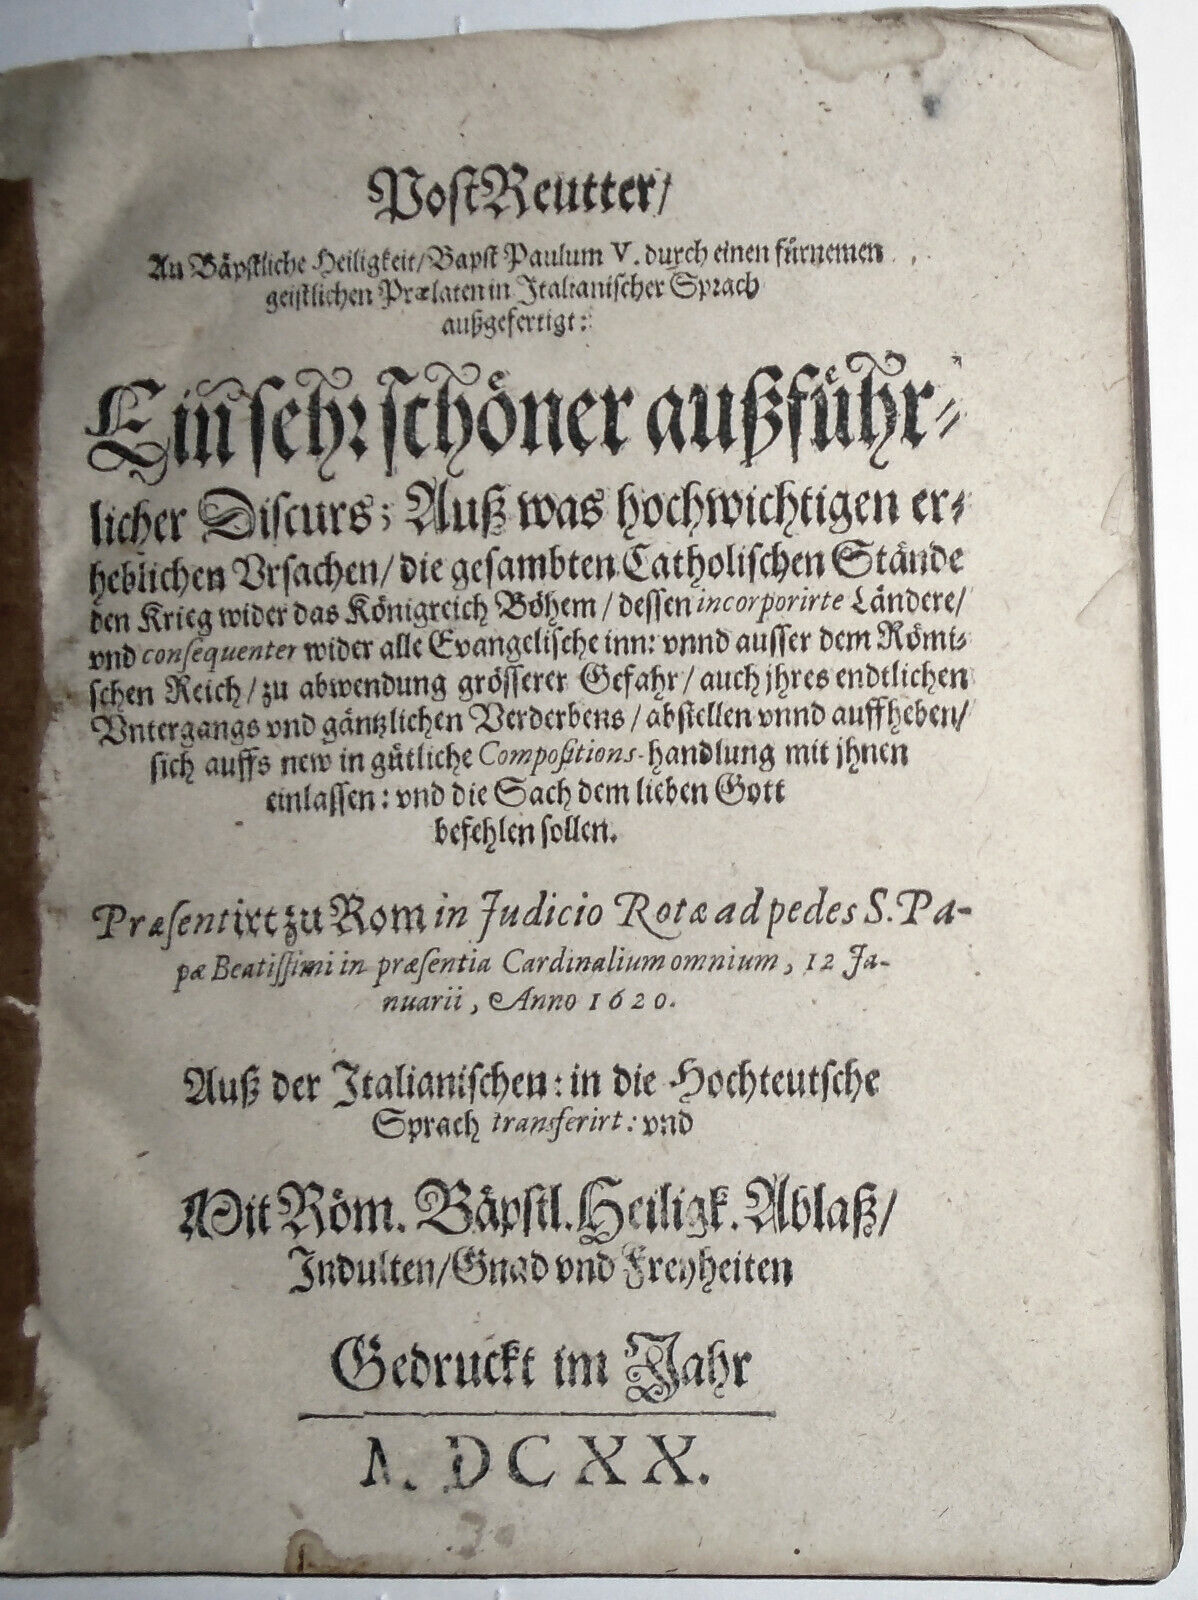 PostReutter/
An Bäpstliche Heiligkeit/Bapst Paulum V. durch einen fürnemen
geistlichen Prælaten in Italianischer Sprach
außgefertigt:
Ein sehr schöner außführ-
licher Discurs; Auß was hochwichtigen er-
heblichen Vrsachen/ die gesambten Catholischen Stände
den Krieg wider das Königreich Böhem/ dessen incorporirte Ländere/
vnd consequenter wider alle Evangelische inn: vnnd ausser dem Römi-
schen Reich/ zu abwendung grösserer Gefahr/ auch jhres endtlichen
Vntergangs vnd gäntzlichen Verderbens/ abstellen vnnd auffheben/
sich auffs new in gütliche Compositions-handlung mit jhnen
einlassen: vnd die Sach dem lieben Gott
befehlen sollen.
Præsentirt zu Rom in Judicio Rotæ ad pedes S. Pa-
pæ Beatissimi in præsentia Cardinalium omnium, 12 Ja-
nuarii, Anno 1620.
Auß der Italianischen: in die Hochteutsche
Sprach transferirt: vnd
Mit Röm. Bäpstl. Heiligk. Ablaß/
Indulten/Gnad vnd Freyheiten
Gedruckt im Jahr
M. DCXX.